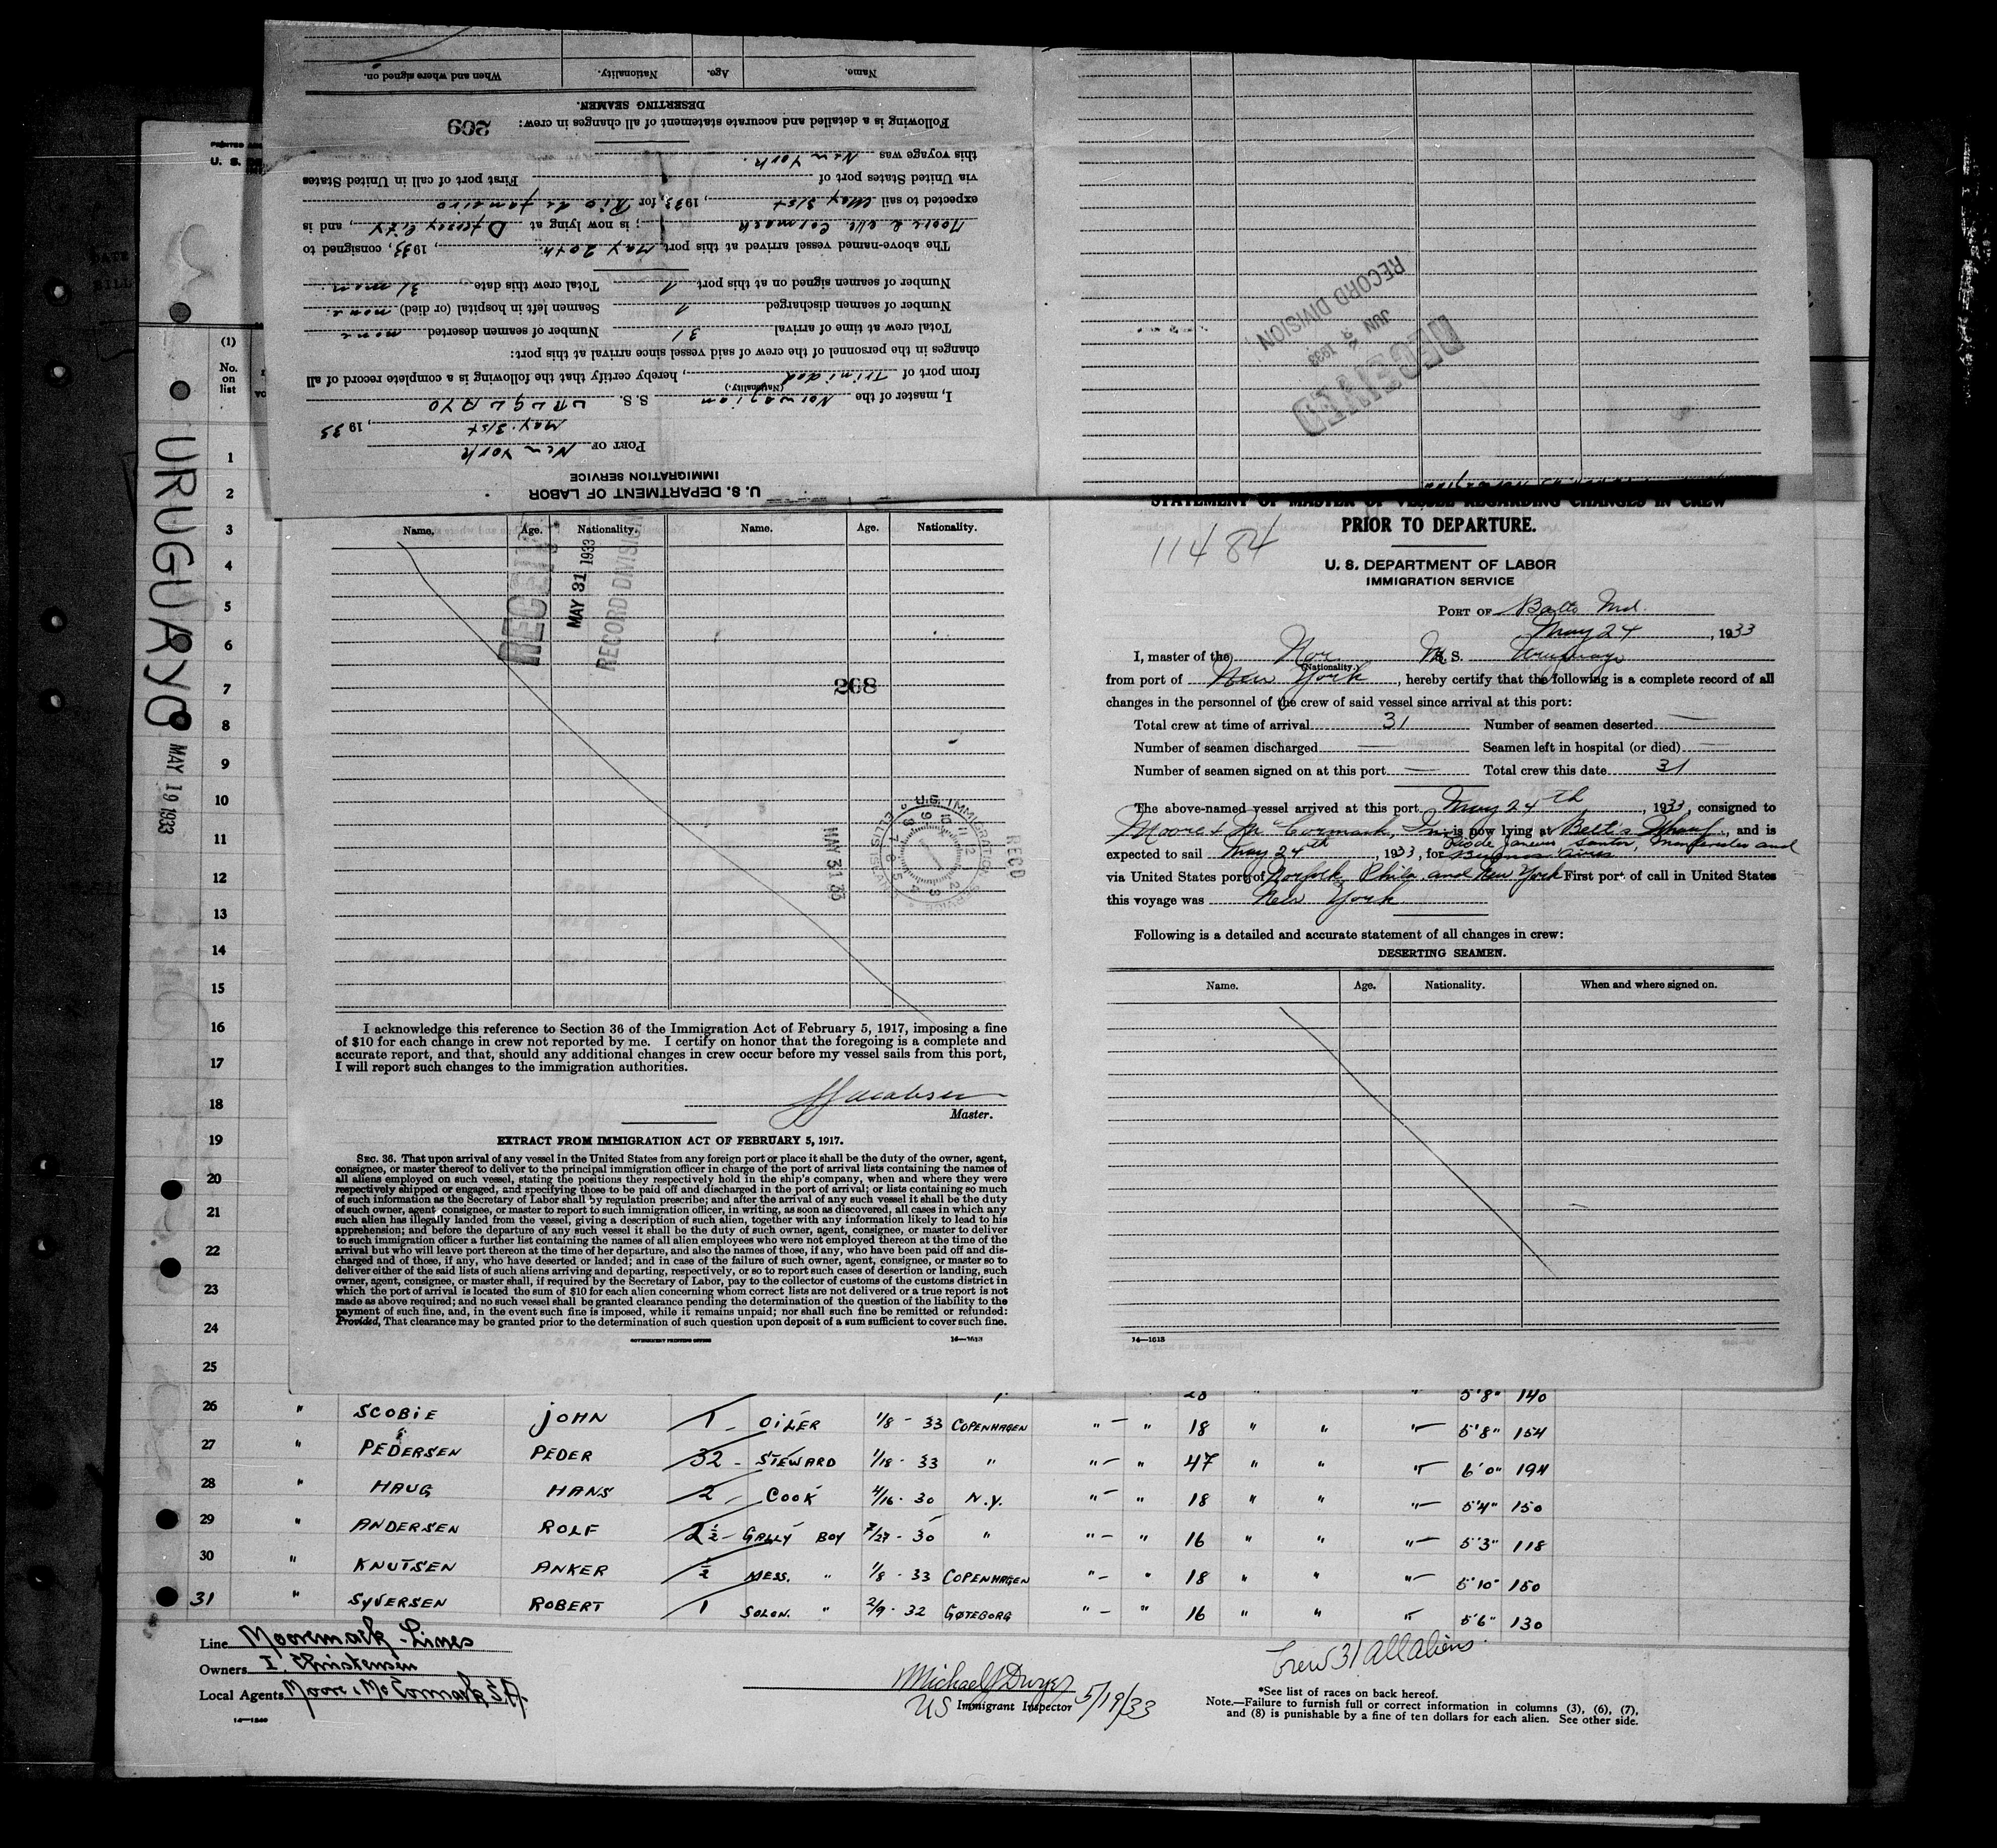 PRINTED
U. S.
URUGUAYO
MAY 19 1933
(1)
No. on list
When and where signed on.
Nationality.
Age.
Name.
DESERTING SEAMEN.
Following is a detailed and accurate statement of all changes in crew:
209
this voyage was New York.
via United States port of First port of call in United States
expected to sail May 31st, 1933, for Rio de Janeiro
Moore & Mc Cormack; is now lying at D Jersey City, and is
The above-named vessel arrived at this port May 20th, 1933, consigned to
Number of seamen signed on at this port 1 Total crew this date 31 men
Number of seamen discharged 1 Seamen left in hospital (or died) none
Total crew at time of arrival 31 Number of seamen deserted none
changes in the personnel of the crew of said vessel since arrival at this port:
from port of Trinidad, hereby certify that the following is a complete record of all
(Nationality.)
I, master of the Norwegian S. S. URUGUAYO
May. 31st, 1933
PORT OF New York
IMMIGRATION SERVICE
U. S. DEPARTMENT OF LABOR
RECEIVED
JUN 1933
RECORD DIVISION
Name. Age. Nationality. Name. Age. Nationality.
RECEIVED
MAY 31 1933
RECORD DIVISION
268
U.S. IMMIGRATION SERVICE ELLIS ISLAND
MAY 31 33
REC'D
I acknowledge this reference to Section 36 of the Immigration Act of February 5, 1917, imposing a fine
of $10 for each change in crew not reported by me. I certify on honor that the foregoing is a complete and
accurate report, and that, should any additional changes in crew occur before my vessel sails from this port,
I will report such changes to the immigration authorities.
Jacobsen
Master.
EXTRACT FROM IMMIGRATION ACT OF FEBRUARY 5, 1917.
SEC. 36. That upon arrival of any vessel in the United States from any foreign port or place it shall be the duty of the owner, agent,
consignee, or master thereof to deliver to the principal immigration officer in charge of the port of arrival lists containing the names of
all aliens employed on such vessel, stating the positions they respectively hold in the ship's company, when and where they were
respectively shipped or engaged, and specifying those to be paid off and discharged in the port of arrival; or lists containing so much
of such information as the Secretary of Labor shall by regulation prescribe; and after the arrival of any such vessel it shall be the duty
of such owner, agent, consignee, or master to report to such immigration officer, in writing, as soon as discovered, all cases in which any
such alien has illegally landed from the vessel, giving a description of such alien, together with any information likely to lead to his
apprehension; and before the departure of any such vessel it shall be the duty of such owner, agent, consignee, or master to deliver
to such immigration officer a further list containing the names of all alien employees who were not employed thereon at the time of the
arrival but who will leave port thereon at the time of her departure, and also the names of those, if any, who have been paid off and dis-
charged and of those, if any, who have deserted or landed; and in case of the failure of such owner, agent, consignee, or master so to
deliver either of the said lists of such aliens arriving and departing, respectively, or so to report such cases of desertion or landing, such
owner, agent, consignee, or master shall, if required by the Secretary of Labor, pay to the collector of customs of the customs district in
which the port of arrival is located the sum of $10 for each alien concerning whom correct lists are not delivered or a true report is not
made as above required; and no such vessel shall be granted clearance pending the determination of the question of the liability to the
payment of such fine, and, in the event such fine is imposed, while it remains unpaid; nor shall such fine be remitted or refunded:
Provided, That clearance may be granted prior to the determination of such question upon deposit of a sum sufficient to cover such fine.
GOVERNMENT PRINTING OFFICE 14—1613
STATEMENT OF MASTER OF VESSEL REGARDING CHANGES IN CREW
PRIOR TO DEPARTURE.
11484
U. S. DEPARTMENT OF LABOR
IMMIGRATION SERVICE
PORT OF Balto Md.
May 24, 1933
I, master of the Nor M. S. Uruguayo
(Nationality.)
from port of New York, hereby certify that the following is a complete record of all
changes in the personnel of the crew of said vessel since arrival at this port:
Total crew at time of arrival 31 Number of seamen deserted —
Number of seamen discharged — Seamen left in hospital (or died) —
Number of seamen signed on at this port — Total crew this date 31
The above-named vessel arrived at this port May 24th, 1933, consigned to
Moore & McCormack, Inc. is now lying at Belt's Wharf, and is
expected to sail May 24th, 1933, for Rio de Janeiro, Santos, Montevideo and Buenos Aires
via United States port of Norfolk, Phila and New York First port of call in United States
this voyage was New York
Following is a detailed and accurate statement of all changes in crew:
DESERTING SEAMEN.
Name. Age. Nationality. When and where signed on.
14—1613
1
2
3
4
5
6
7
8
9
10
11
12
13
14
15
16
17
18
19
20
21
22
23
24
25
26 " SCOBIE JOHN 1 - OILER 1/8 - 33 COPENHAGEN " — " 18 " " " — 5'8" 154
27 " PEDERSEN PEDER 32 - STEWARD 1/18 - 33 " " — " 47 " " " — 6'0" 194
28 " HAUG HANS 2 - COOK 4/16 - 30 N.Y. " — " 18 " " " — 5'4" 150
29 " ANDERSEN ROLF 2 1/2 - GALLY BOY 7/27 - 30 " " — " 16 " " " — 5'3" 118
30 " KNUTSEN ANKER 1/2 MESS. " 1/8 - 33 COPENHAGEN " — " 18 " " " — 5'10" 150
31 " SYVERSEN ROBERT 1 SOLON. " 2/9 - 32 GØTEBORG " — " 16 " " " — 5'6" 130
Line Mooremack-Lines
Owners I. Christensen
Local Agents Moore & McCormack S.A.
14—1240
Michael J Dwyer
US Immigrant Inspector 5/19/33
Crew 31 all aliens.
*See list of races on back hereof.
Note.—Failure to furnish full or correct information in columns (3), (6), (7),
and (8) is punishable by a fine of ten dollars for each alien. See other side.